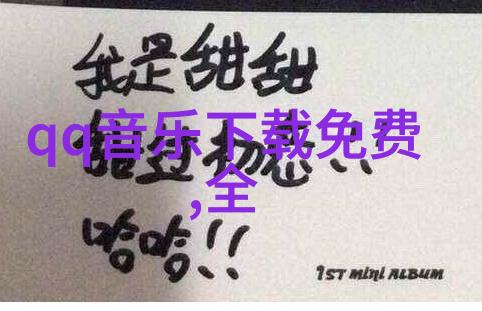 我是甜甜
qq音乐下载免费
,全
哈哈!!
1ST MINI ALBUM